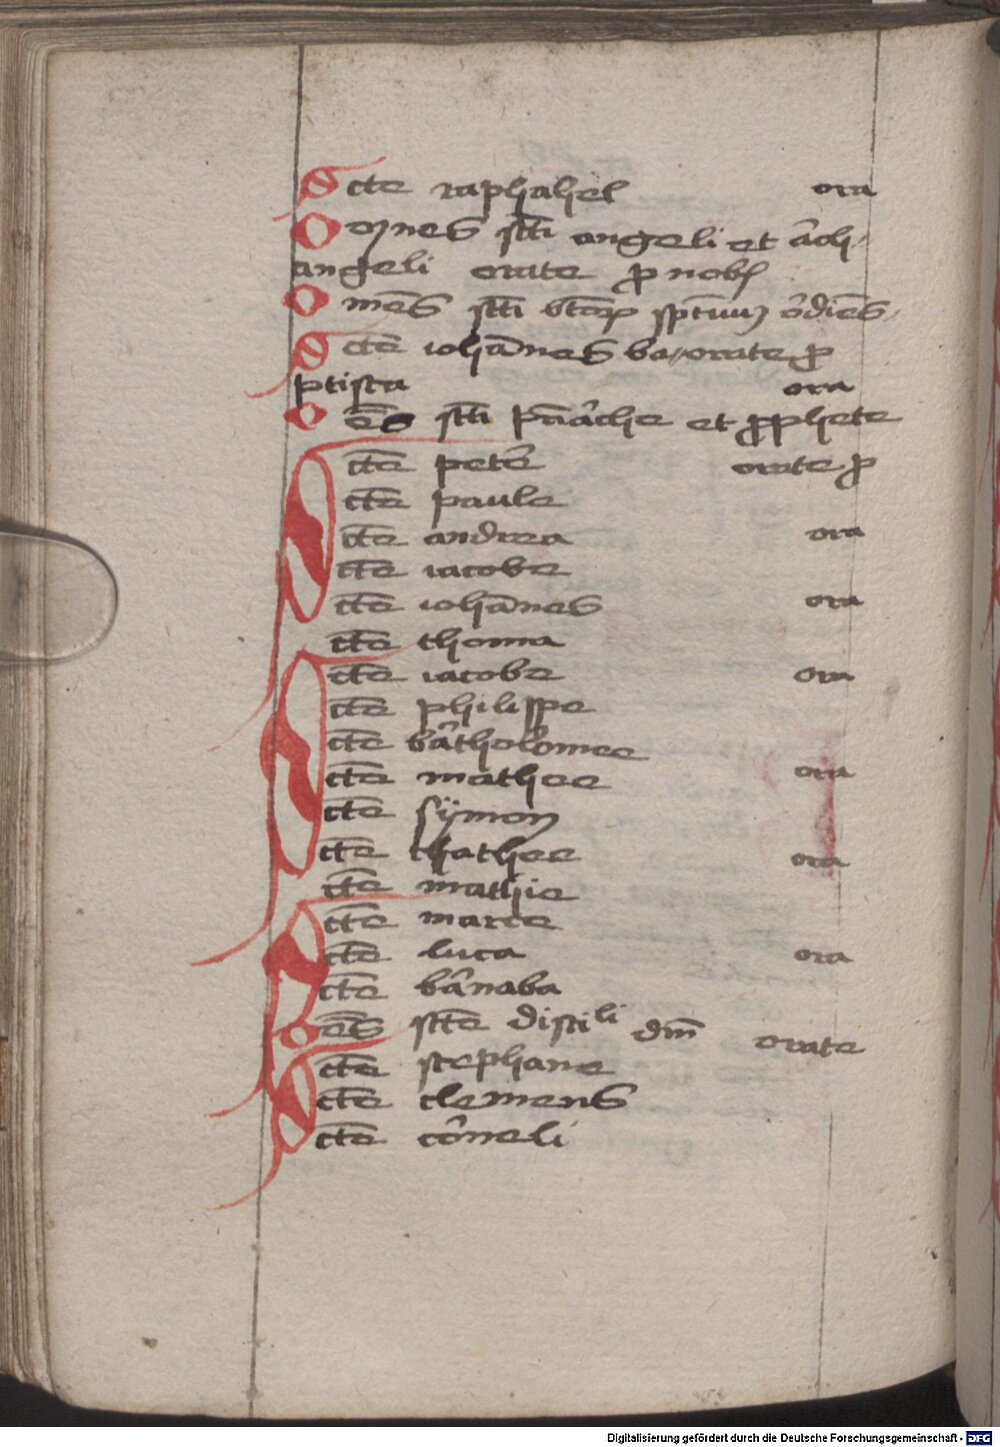 Scte raphahel ora
Omnes scti angeli et archangeli
angeli orate p nob
Omes scti btorꝝ sptuum ordies
Scte iohannes ba orate p
ptista ora
Oes scti priarche et pphete
Scte petre orate p
cte paule
cte andrea ora
cte iacobe
cte iohannes ora
cte thoma
Scte iacobe ora
cte philippe
cte bartholomee
cte mathee ora
cte symon
cte thathee ora
cte mathie
Scte marce
cte luca ora
cte barnaba
Oes scte discili dni orate
Scte stephane
cte clemens
cte corneli
Digitalisierung gefördert durch die Deutsche Forschungsgemeinschaft - DFG